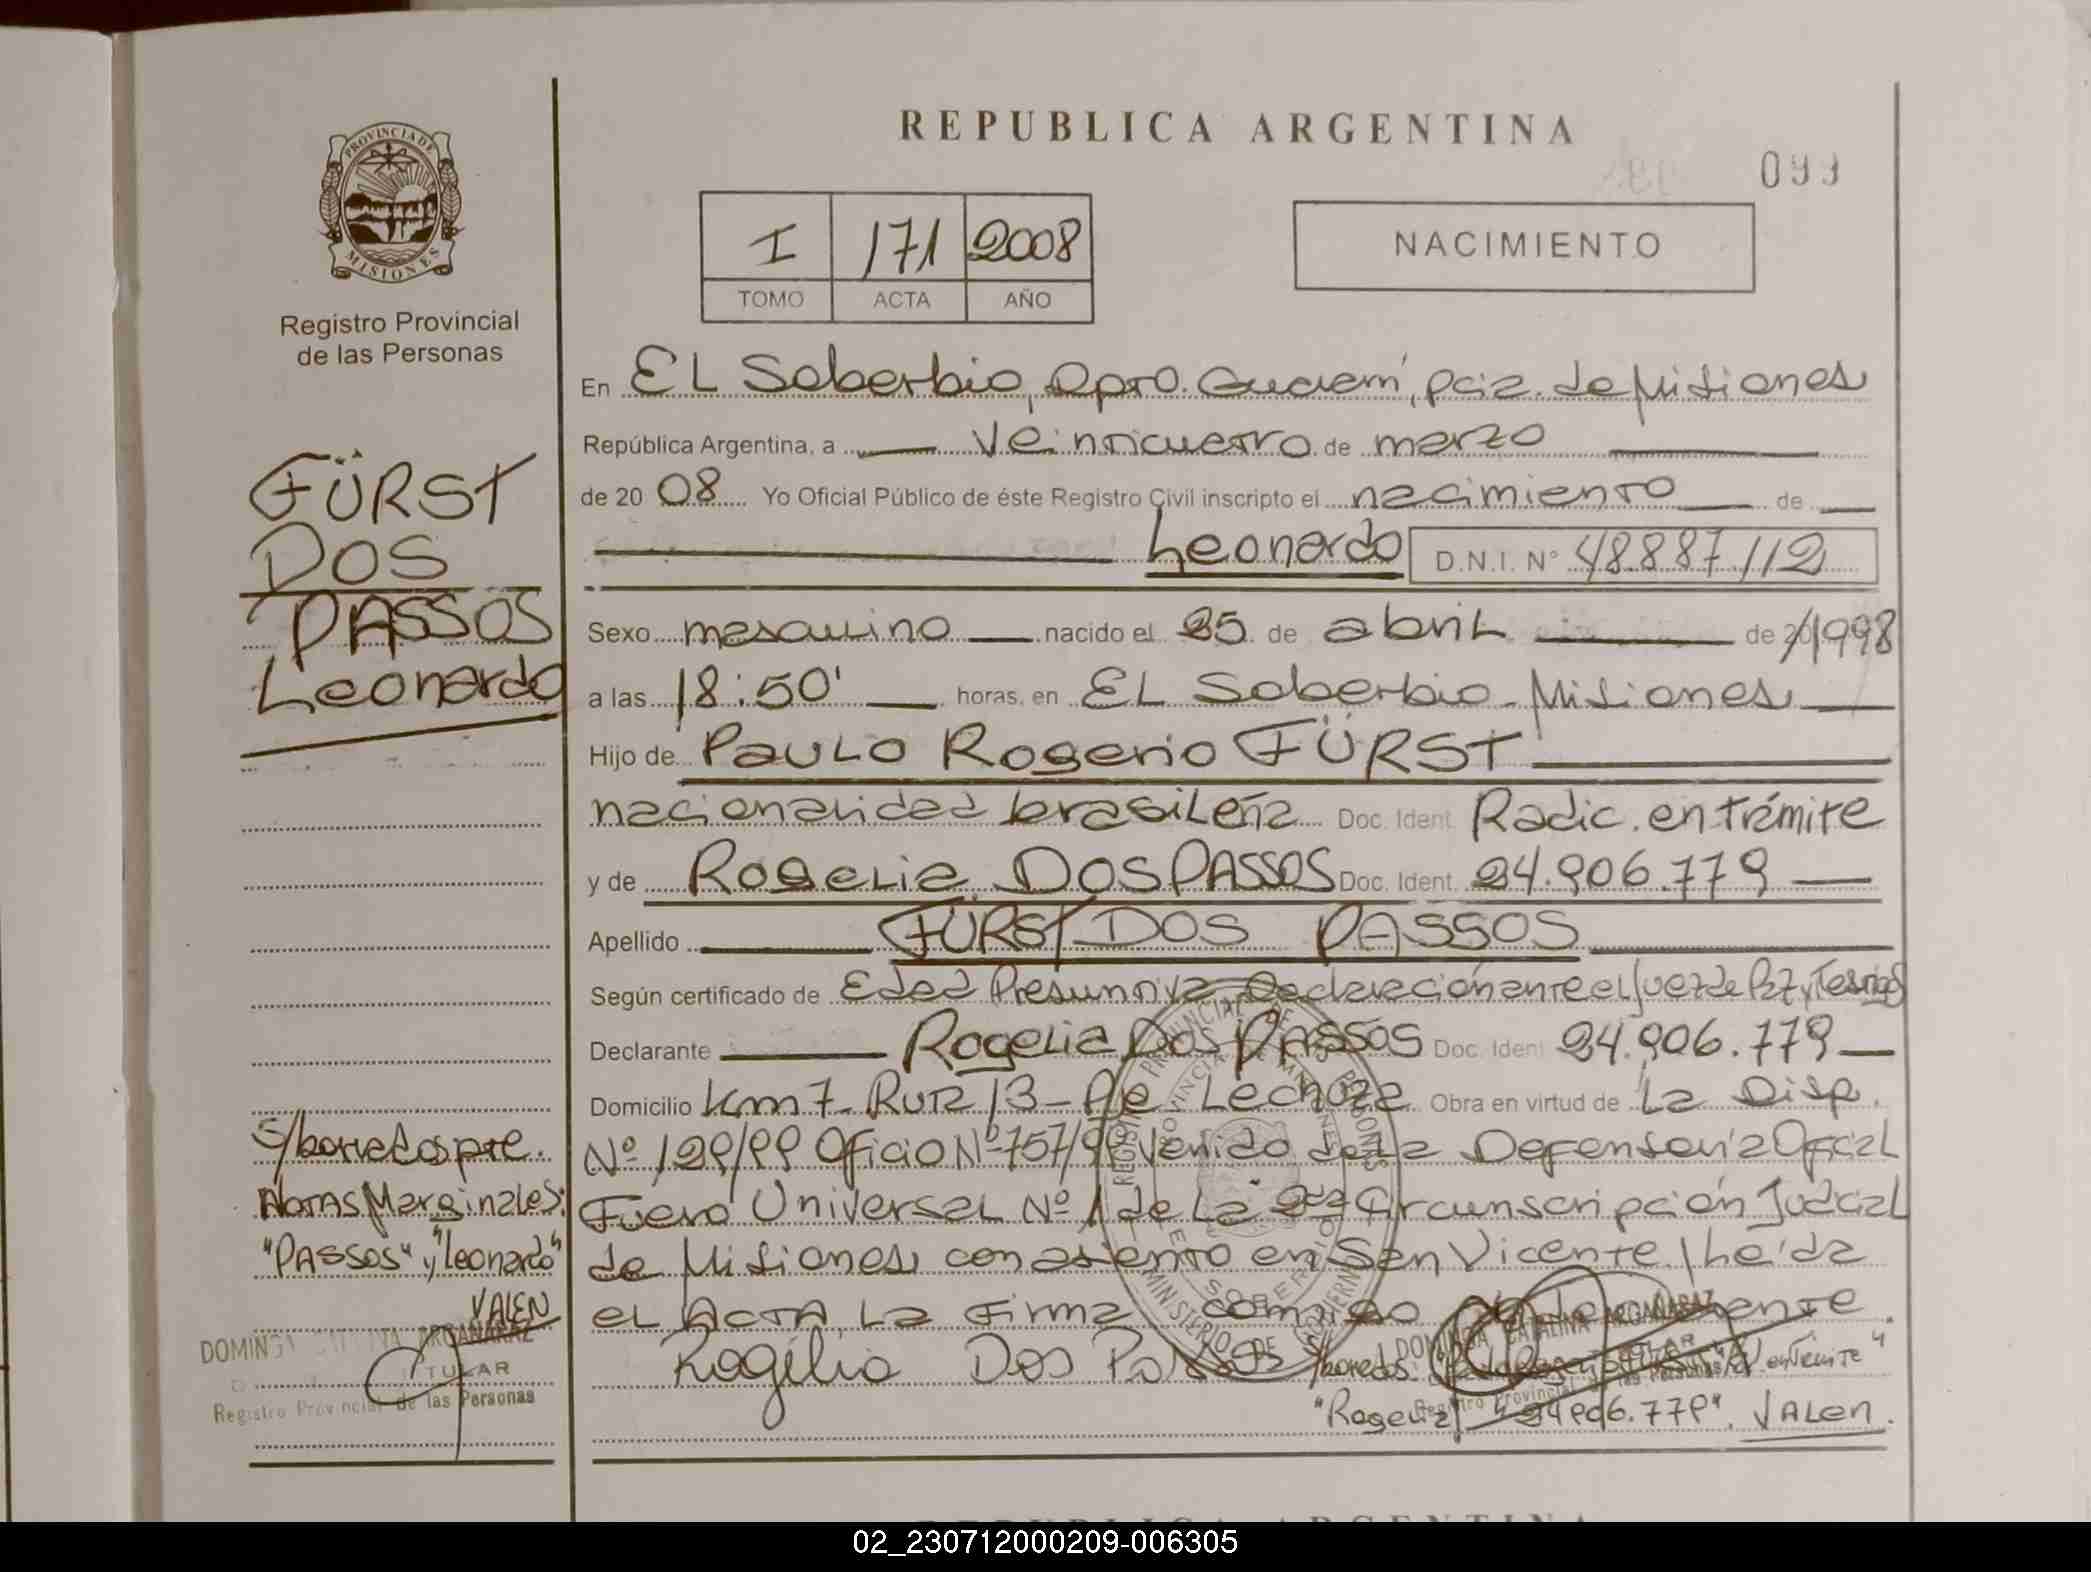 REPUBLICA ARGENTINA
099
PROVINCIA DE
MISIONES
Registro Provincial
de las Personas
I 171 2008
TOMO ACTA AÑO
NACIMIENTO
En EL Soberbio, Dpto. Guaraní, pcia. de Misiones
República Argentina, a veinticuatro de marzo
de 2008 Yo Oficial Público de éste Registro Civil inscripto el nacimiento de
Leonardo D.N.I. N° 48.887.112
Sexo masculino nacido el 25 de abril de 20/1998
a las 18:50' horas, en EL Soberbio - Misiones
Hijo de Paulo Rogerio FÜRST
nacionalidad brasileña Doc. Ident. Radic. en trámite
y de Rogelia DOS PASSOS Doc. Ident. 24.906.779
Apellido FÜRST DOS PASSOS
Según certificado de Edad Presuntiva Declaración ante el Juez de Paz y Testigos
Declarante Rogelia DOS PASSOS Doc. Ident 24.906.779
Domicilio km 7 - Ruta 13 - Pje Lechuza Obra en virtud de La Disp.
N° 129/99 Oficio N° 757/99 Venido de La Defensoría Oficial
Fuero Universal N° 1 de La 2da Circunscripción Judicial
de Misiones con asiento en San Vicente, leída
el ACTA, La firma conmigo
Rogélia Dos Passos s/borrados: en trámite"
"Rogelia" "24.906.779". VALEN.
FÜRST
DOS
PASSOS
Leonardo
s/borrados pte.
Notas Marginales:
"PASSOS" y "Leonardo"
VALEN
DOMINGA CATALINA ARGAÑARAZ
TITULAR
Registro Provincial de las Personas
DOMINGA CATALINA ARGAÑARAZ
Registro Provincial de las Personas
REPUBLICA ARGENTINA
02_230712000209-006305